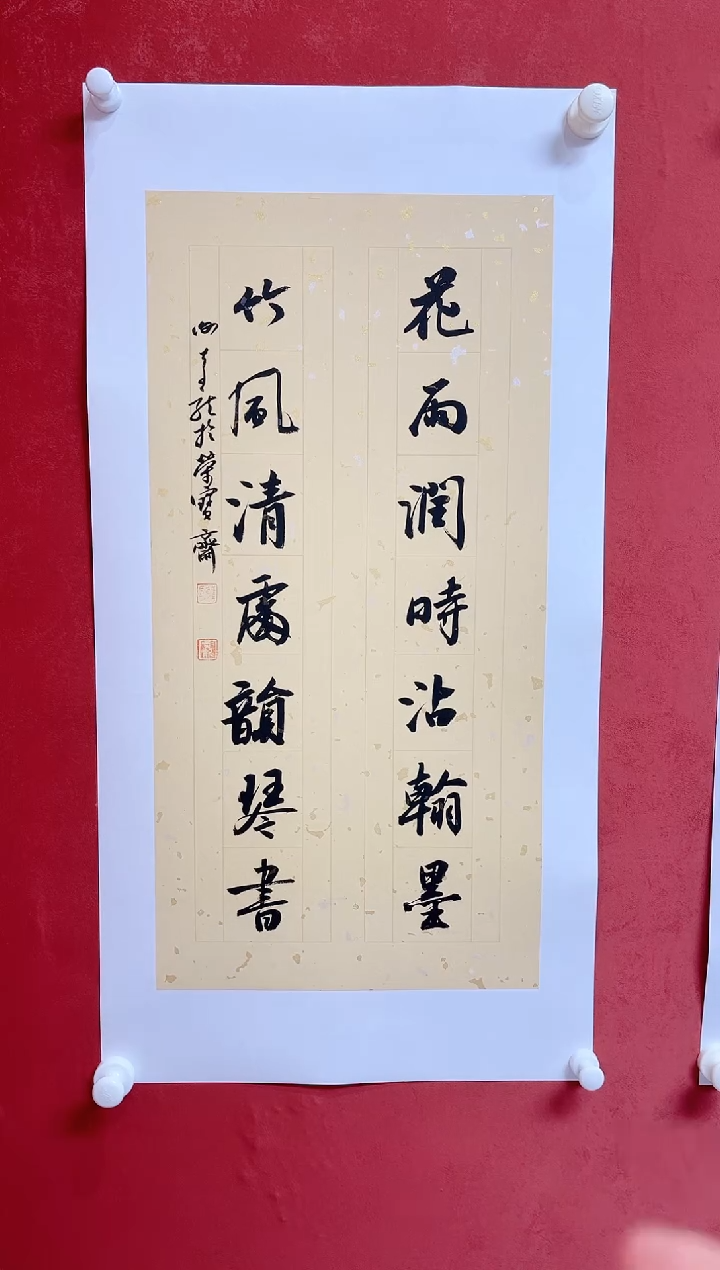 花雨潤時沾翰墨
竹風清處韻琴書
於榮寶齋